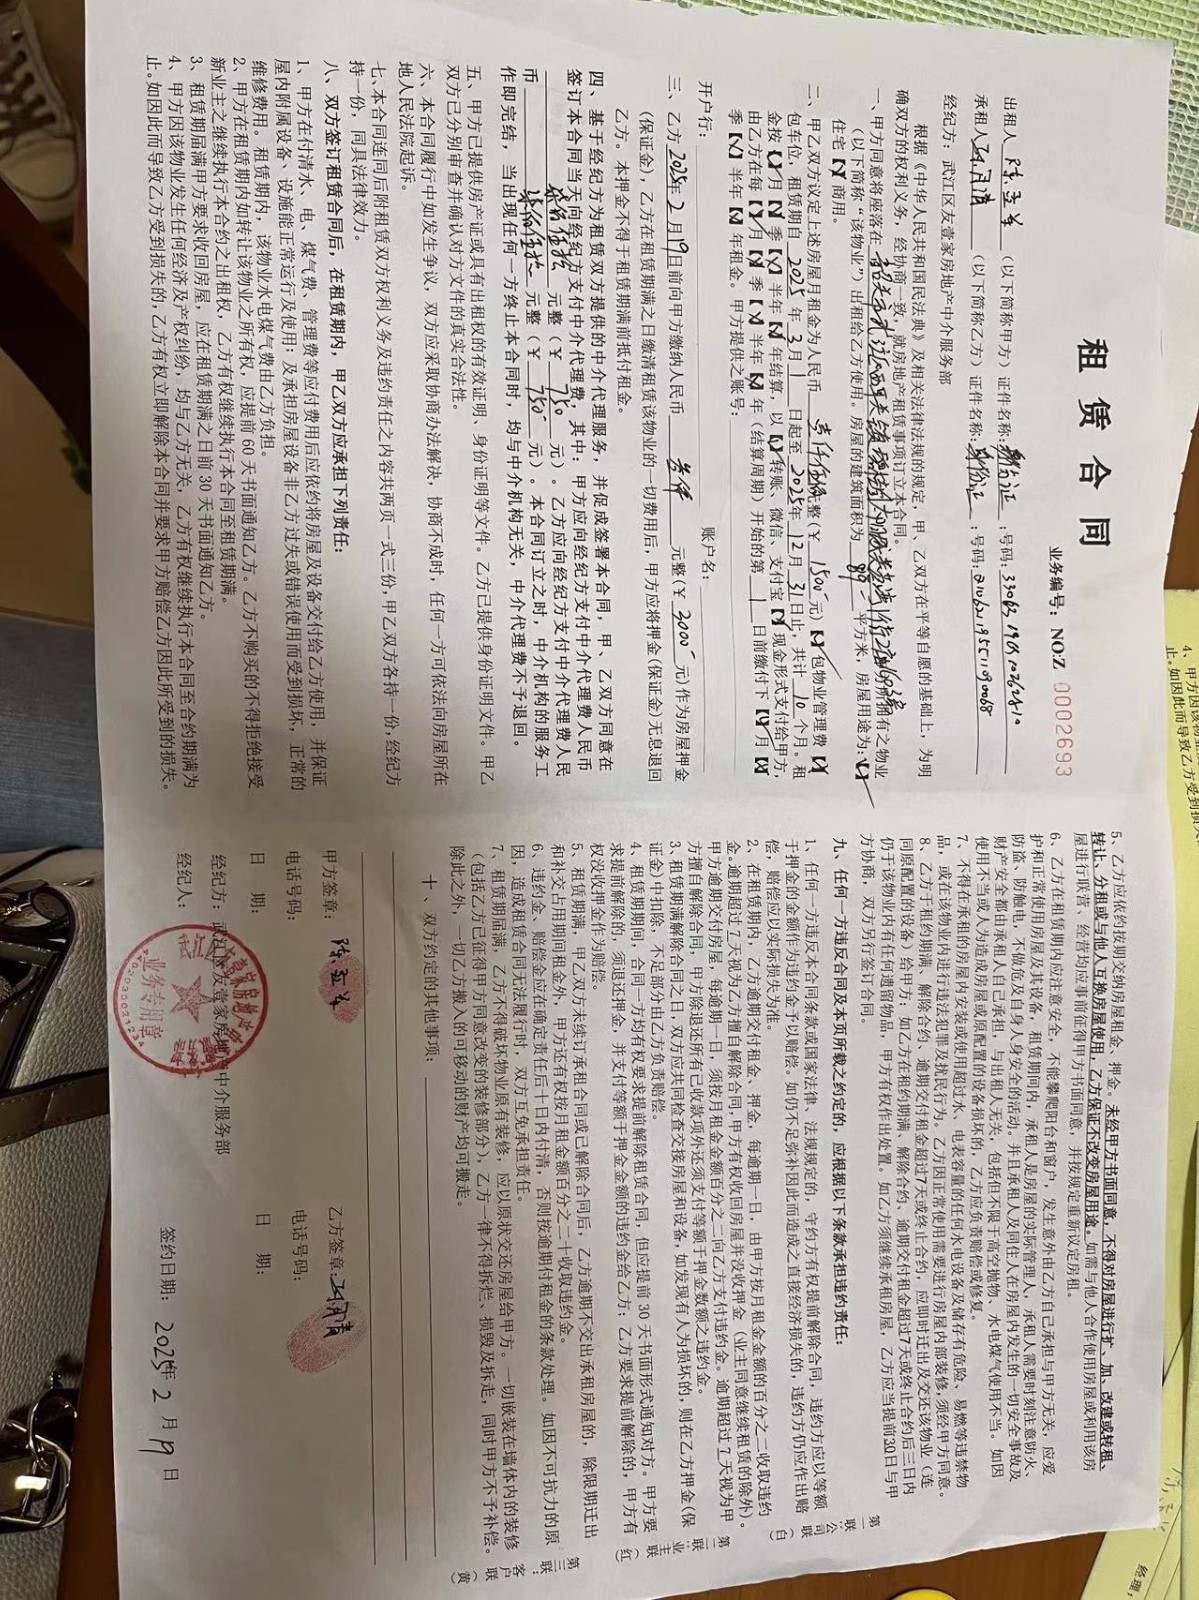 租赁合同
业务编号：NO:Z 0002693
出租人（以下简称甲方）证件名称：身份证：号码：
承租人（以下简称乙方）证件名称：身份证：号码：210621195511090068
经纪方：武江区友壹家房地产中介服务部
根据《中华人民共和国民法典》及相关法律法规的规定，甲、乙双方在平等自愿的基础上，为明
确双方的权利义务，经协商一致，就房地产租赁事项订立本合同。
一、甲方同意将座落在 韶关市武江区西联镇 房所拥有之物业
（以下简称“该物业”）出租给乙方使用。房屋的建筑面积为 89 平方米，房屋用途为：【✓】
住宅【】商用。
二、甲乙双方议定上述房屋月租金为人民币 壹仟伍佰元整（￥1500元）【】包物业管理费【】
包车位，租赁期自 2025 年 3 月 1 日起至 2025年 12 月 31 日止，共计 10 个月。租
金按【】月【】季【】半年【】年结算，以【】转账、微信、支付宝【】现金形式支付给甲方，
由乙方在每【】月【】季【】半年【】年（结算周期）开始的第 1 日前缴付下【】月【】
季【】半年【】年租金。甲方提供之账号：
开户行： 账户名：
三、乙方 2025年 2 月 19 日前向甲方缴纳人民币 叁仟 元整（￥3000 元）作为房屋押金
（保证金），乙方在租赁期满之日缴清租赁该物业的一切费用后，甲方应将押金（保证金）无息退回
乙方。本押金不得于租赁期满前抵付租金。
四、基于经纪方为租赁双方提供的中介代理服务，并促成签署本合同，甲、乙双方同意在
签订本合同当天向经纪方支付中介代理费，其中：甲方应向经纪方支付中介代理费人民币
柒佰伍拾 元整（￥750 元）。乙方应向经纪方支付中介代理费人民
币 柒佰伍拾 元整（￥750 元）。本合同订立之时，中介机构的服务工
作即完结，当出现任何一方终止本合同时，均与中介机构无关，中介代理费不予退回。
五、甲方已提供房产证或具有出租权的有效证明、身份证明等文件。乙方已提供身份证明文件。甲乙
双方已分别审查并确认对方文件的真实合法性。
六、本合同履行中如发生争议，双方应采取协商办法解决，协商不成时，任何一方可依法向房屋所在
地人民法院起诉。
七、本合同连同后附租赁双方权利义务及违约责任之内容共两页一式三份，甲乙双方各持一份，经纪方
持一份，同具法律效力。
八、双方签订租赁合同后，在租赁期内，甲乙双方应承担下列责任：
1、甲方在付清水、电、煤气费、管理费等应付费用后应依约将房屋及设备交付给乙方使用，并保证
屋内附属设备、设施能正常运行及使用；及承担房屋设备非乙方过失或错误使用而受到损坏，正常的
维修费用。租赁期内，该物业水电煤气费由乙方负担。
2、甲方在租赁期内如转让该物业之所有权，应提前60天书面通知乙方。乙方不购买的不得拒绝接受
新业主之继续执行本合约之出租权，乙方有权继续执行本合同至租赁期满。
3、租赁期届满甲方要求收回房屋，应在租赁期满之日前30天书面通知乙方。
4、甲方因该物业发生任何经济及产权纠纷，均与乙方无关，乙方有权继续执行本合同至合约期满为
止。如因此而导致乙方受到损失的，乙方有权立即解除本合同并要求甲方赔偿乙方因此所受到的损失。
5、乙方应依约按期交纳房屋租金、押金。未经甲方书面同意，不得对房屋进行扩、加、改建或转租、
转让、分租或与他人互换房屋使用，乙方保证不改变房屋用途。如需与他人合作使用房屋或利用该房
屋进行联营、经营均应事前征得甲方书面同意，并按规定重新议定房租。
6、乙方在租赁期内应注意安全，不能攀爬阳台和窗户，发生意外由乙方自己承担与甲方无关，应爱
护和正常使用房屋及其设备，租赁期间内，承租人是房屋的实际管理人，承租人需要时刻注意防火、
防盗、防触电，不做危及自身人身安全的活动。并且承租人及同住人在房屋内发生的一切安全事故及
财产安全都由承租人自己承担，与出租人无关，包括但不限于高空抛物、水电煤气使用不当。如因
使用不当或人为造成房屋或原配置的设备损坏的，乙方应负责赔偿或修复。
7、不得在承租的房屋内安装或使用超过水、电表容量的任何水电设备及储存有危险、易燃等违禁物
品，或在该物业内进行违法犯罪及扰民行为。乙方因正常使用需要进行房屋内部装修，须经甲方同意。
8、乙方于租约期满、解除合约、逾期交付租金超过7天或终止合约，应即时迁出及交还该物业（连
同原配置的设备）给甲方；如乙方在租约期满、解除合约、逾期交付租金超过7天或终止合约后三日内
仍于该物业内有任何遗留物品，甲方有权作出处置。如乙方须继续承租房屋，乙方应当提前30日与甲
方协商，双方另行签订合同。
九、任何一方违反合同及本页所载之约定的，应根据以下条款承担违约责任：
1、任何一方违反本合同条款或国家法律、法规规定的，守约方有权提前解除合同，违约方应以等额
于押金的金额作为违约金予以赔偿。如仍不足弥补因此而造成之直接经济损失的，违约方仍应作出赔
偿，赔偿应以实际损失为准。
2、在租赁期内，乙方逾期交付租金、押金，每逾期一日，由甲方按月租金金额的百分之二收取违约
金。逾期超过7天视为乙方擅自解除合同，甲方有权收回房屋并没收押金（业主同意继续租赁的除外）。
甲方逾期交付房屋，每逾期一日，须按月租金金额百分之二向乙方支付违约金。逾期超过7天视为甲
方擅自解除合同，甲方除退还所有已收款项外还须支付等额于押金数额之违约金。
3、租赁期满解除合同之日，双方应共同检查交接房屋和设备，如发现有人为损坏的，则在乙方押金（保
证金）中扣除，不足部分由乙方负责赔偿。
4、租赁期期间，合同一方均有权要求提前解除租赁合同，但应提前30天书面形式通知对方。甲方要
求提前解除的，须退还押金，并支付等额于押金金额的违约金给乙方；乙方要求提前解除的，甲方有
权没收押金作为赔偿。
5、租赁期满，甲乙双方未续订承租合同或已解除合同后，乙方逾期不交出承租房屋的，除限期迁出
和补交占用期间租金外，甲方还有权按月租金额百分之二十收取违约金。
6、违约金、赔偿金应在确定责任后十日内付清，否则按逾期付租金的条款处理。如因不可抗力的原
因，造成租赁合同无法履行时，双方互免承担责任。
7、租赁期届满，乙方不得破坏物业原有装修，应以原状交还房屋给甲方。一切嵌装在墙体内的装修
（包括乙方已征得甲方同意改变的装修部分），乙方一律不得拆烂、损毁及拆走，同时甲方不予补偿。
除此之外，一切乙方搬入的可移动的财产均可搬走。
十、双方约定的其他事项：
甲方签章： 乙方签章：
电话号码： 电话号码：
日 期： 日 期：
经纪方：武江区友壹家房地产中介服务部
经纪人： 签约日期：2025年 2 月 19 日
业务专用章
第一联：公司联（白）
第二联：业主联（红）
第三联：客户联（黄）